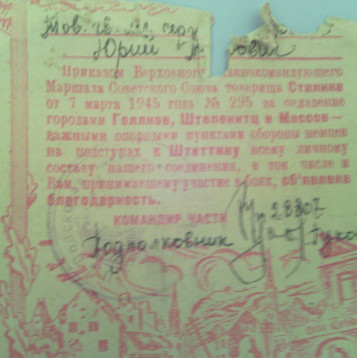 Тов. гв. мл. сер
Юрий ович
Приказом Верховного
Маршала Советского Союза товарища Сталина
от 7 марта 1945 года № 295 за овладение
городами Голлнов, Штепенитц и Массов —
важными опорными пунктами обороны немцев
на подступах к Штеттину всему личному
составу нашего соединения, в том числе и
Вам, принимавшему участие в боях, объявлена
благодарность.
КОМАНДИР ЧАСТИ
28807
Подполковник